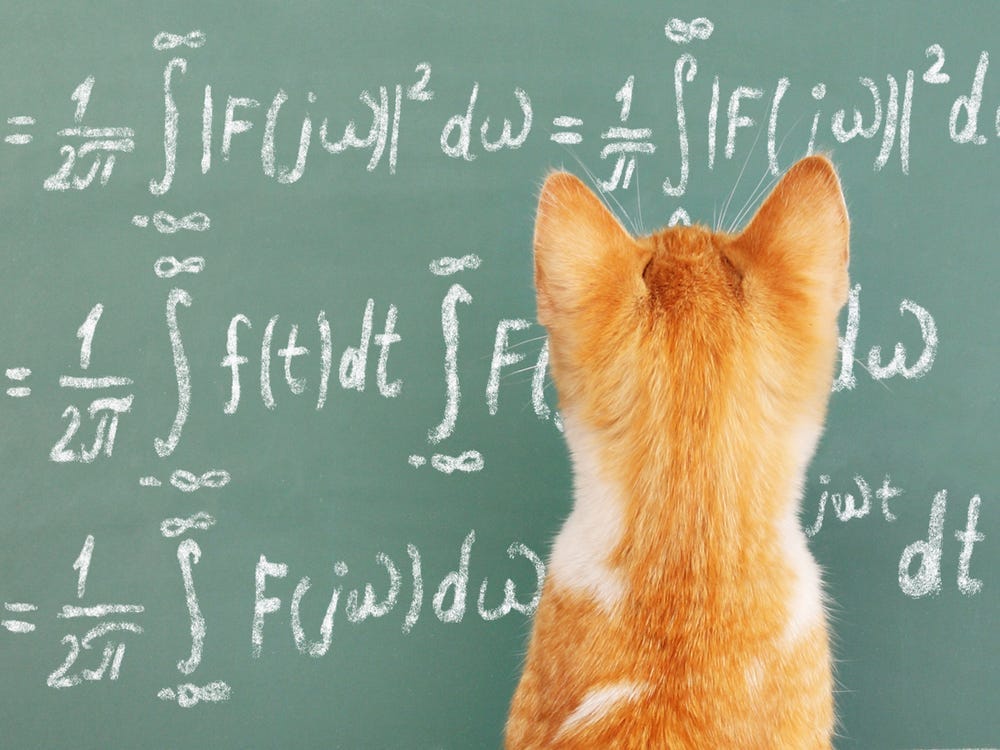 = 1/2π ∫_{-∞}^{∞} |F(jω)|² dω = 1/π ∫^{∞} |F(jω)|² d
= 1/2π ∫_{-∞}^{∞} f(t)dt ∫_{-∞}^{∞} F( dω
= 1/2π ∫_{-∞}^{∞} F(jω)dω jωt dt